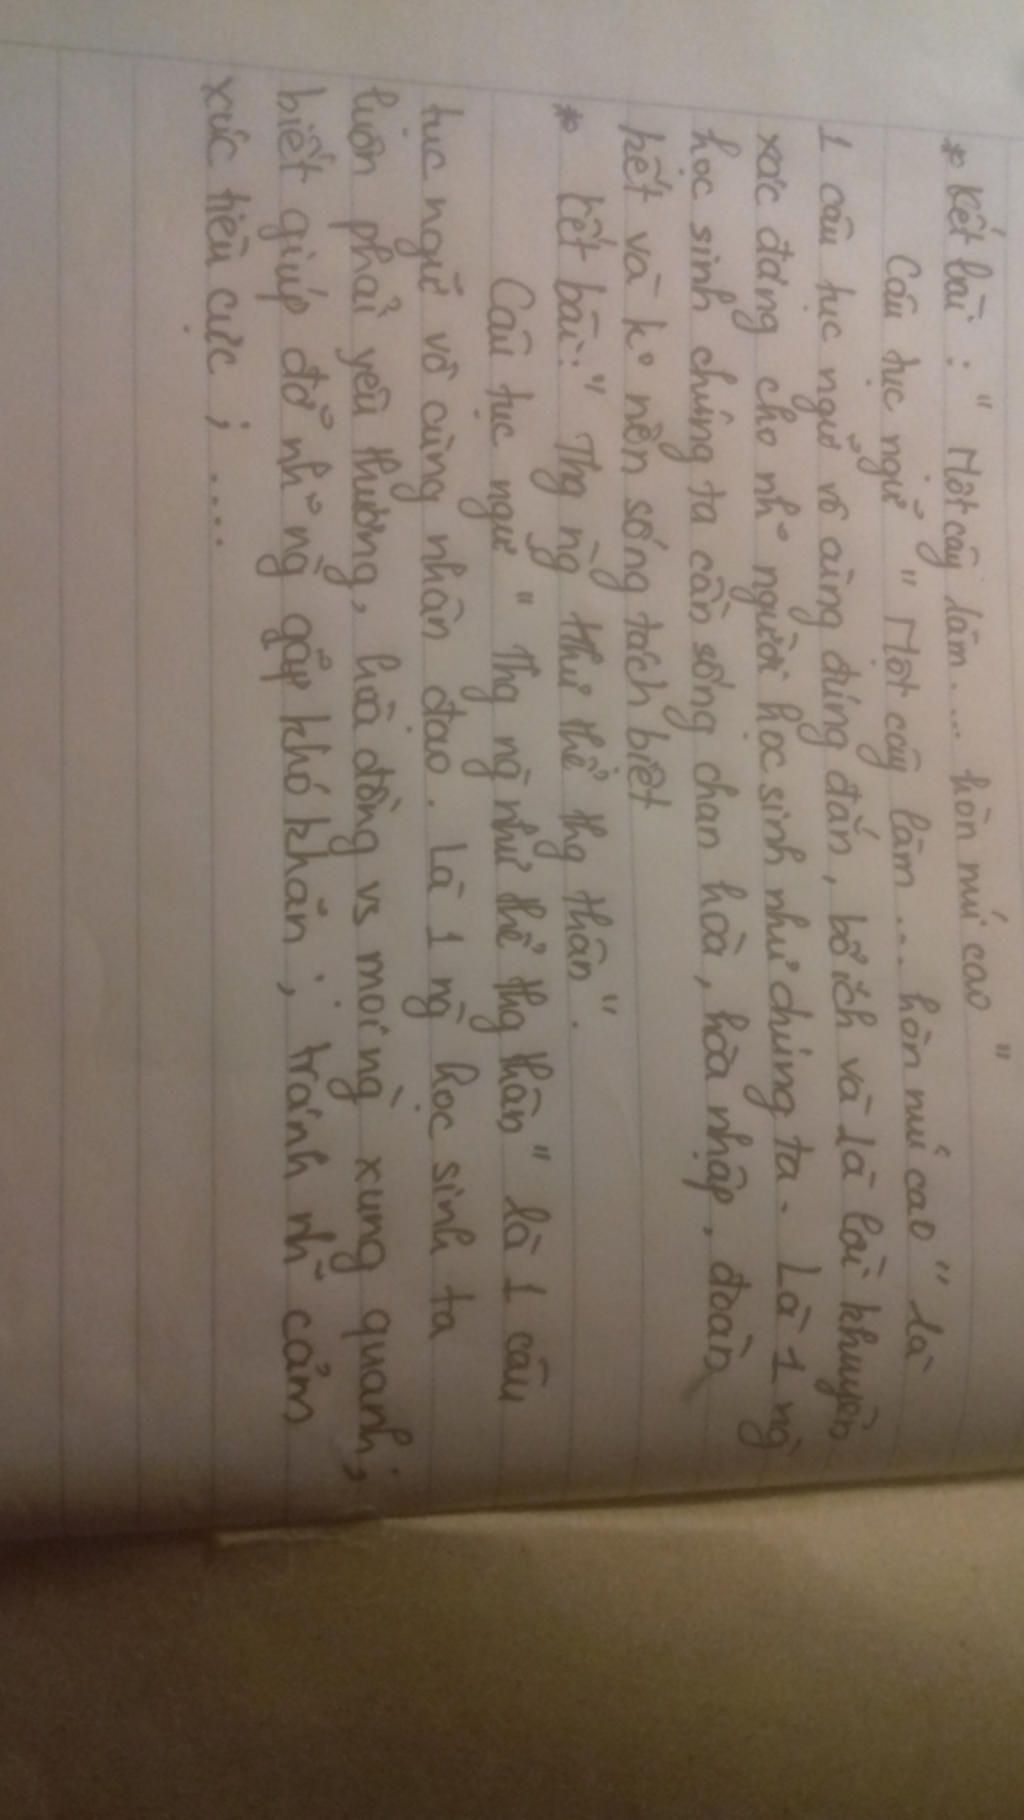 * Kết bài : " Một cây làm .... hòn núi cao "
Câu tục ngữ " Một cây làm .... hòn núi cao " là
1 câu tục ngữ vô cùng đúng đắn, bổ ích và là lời khuyên
xác đáng cho nh~ người học sinh như chúng ta. Là 1 ng`
học sinh chúng ta cần sống chan hoà, hòa nhập, đoàn
kết và k° nên sống tách biệt
* Kết bài: " Thg ng` như thể thg thân ".
Câu tục ngữ " Thg ng` như thể thg thân " là 1 câu
tục ngữ vô cùng nhân đạo. Là 1 ng` học sinh ta
luôn phải yêu thương, hoà đồng vs mọi ng` xung quanh;
biết giúp đỡ nh~ ng` gặp khó khăn; tránh nh~ cảm
xúc tiêu cực ; ....